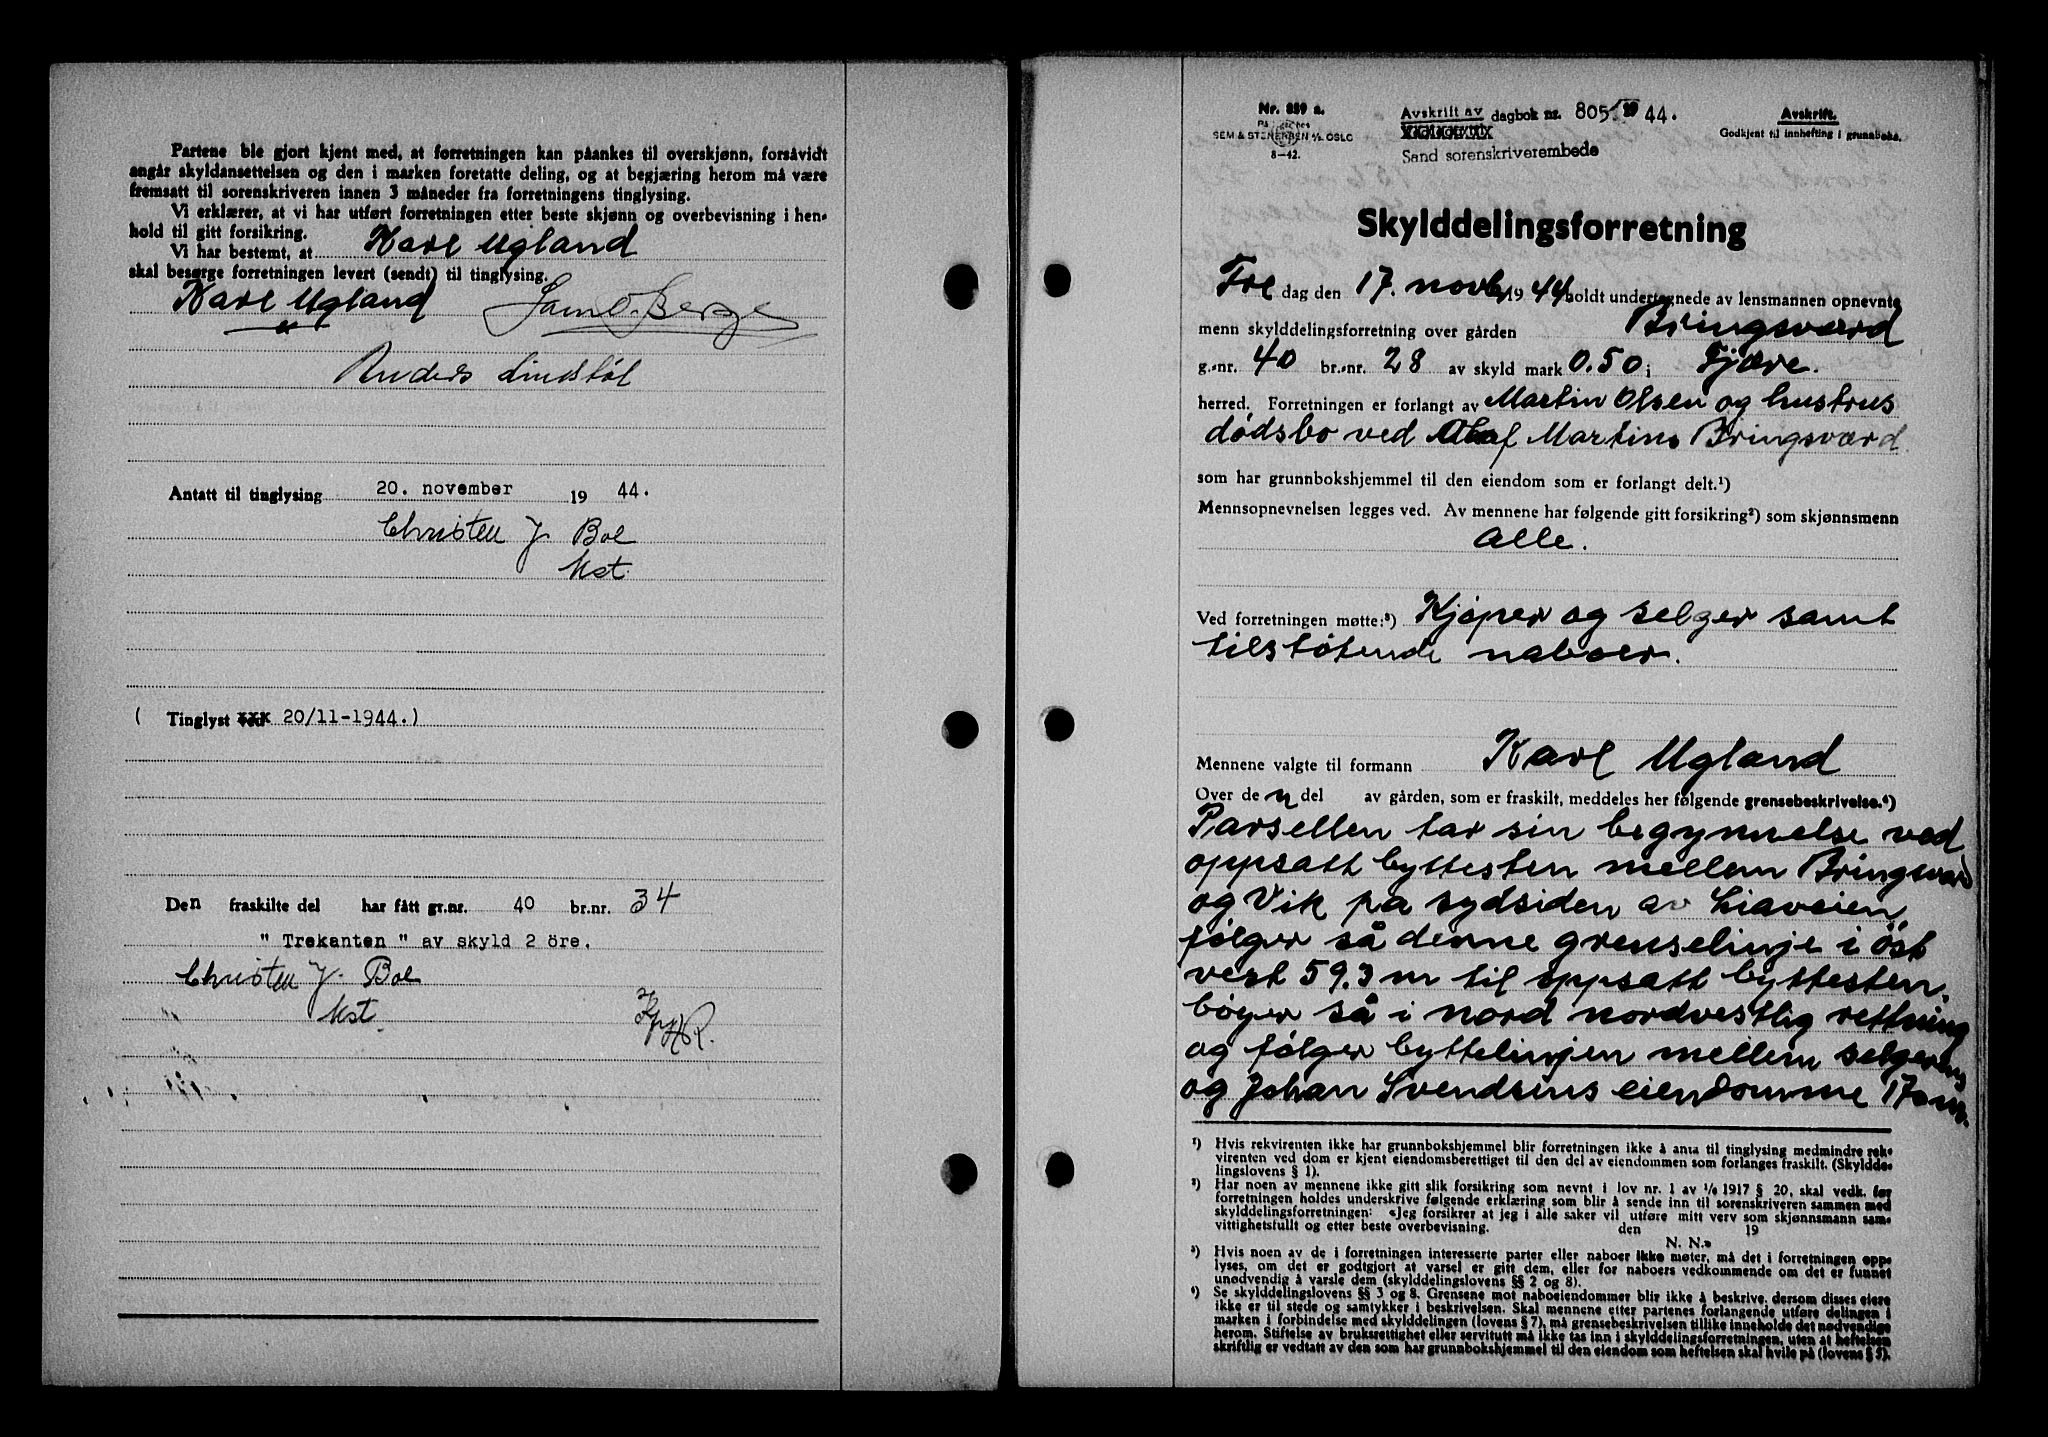 Partene ble gjort kjent med, at forretningen kan påankes til overskjønn, forsåvidt
angår skyldansettelsen og den i marken foretatte deling, og at begjæring herom må være
fremsatt til sorenskriveren innen 3 måneder fra forretningens tinglysing.
Vi erklærer, at vi har utført forretningen etter beste skjønn og overbevisning i hen-
hold til gitt forsikring.
Vi har bestemt, at Karl Ugland
skal besørge forretningen levert (sendt) til tinglysing.
Karl Ugland
Anders Lindtøl
Antatt til tinglysing 20. november 19 44.
Christen J. Boe
kst.
( Tinglyst ved 20/11-1944.)
Den fraskilte del har fått gr.nr. 40 br.nr. 34
" Trekanten " av skyld 2 öre.
Christen J. Boe
kst.
Nr. 859 a.
SEM & STENERSEN A/S OSLO
8-42.
Avskrift av dagbok nr. 805 1944.
Sand sorenskriverembede
Avskrift.
Godkjent til innhefting i grunnboka.
Skylddelingsforretning
Fre dag den 17. novb 1944 holdt undertegnede av lensmannen opnevnte
menn skylddelingsforretning over gården Bringsværd
g.-nr. 40 br.-nr. 28 av skyld mark 0.50 i Fjære.
herred. Forretningen er forlangt av Martin Olsen og hustrus
dødsbo ved Olaf Martins Bringsværd.
som har grunnbokshjemmel til den eiendom som er forlangt delt.¹)
Mennsopnevnelsen legges ved. Av mennene har følgende gitt forsikring²) som skjønnsmenn
alle.
Ved forretningen møtte:³) Kjøper og selger samt
tilstøtende naboer.
Mennene valgte til formann Karl Ugland
Over den del av gården, som er fraskilt, meddeles her følgende grensebeskrivelse.⁴)
Parsellen tar sin begynnelse ved
oppsatt byttesten mellem Bringsværd
og Vik på sydsiden av Liaveien,
følger så denne grenselinje i öst
vest 59.3 m til oppsatt byttesten,
bøyer så i nord nordvestlig rettning
og følger byttelinjen mellem selgerens
og Johan Svendsens eiendomme 17 om.
¹) Hvis rekvirenten ikke har grunnbokshjemmel blir forretningen ikke å anta til tinglysing medmindre rek-
virenten ved dom er kjent eiendomsberettiget til den del av eiendommen som forlanges fraskilt. (Skyldde-
lingslovens § 1).
²) Har noen av mennene ikke gitt slik forsikring som nevnt i lov nr. 1 av 1/6 1917 § 20, skal vedk. før
forretningen holdes underskrive følgende erklæring som blir å sende inn til sorenskriveren sammen med
skylddelingsforretningen: «Jeg forsikrer at jeg i alle saker vil utføre mitt verv som skjønnsmann sam-
vittighetsfullt og etter beste overbevisning. den 19
N. N.»
³) Hvis noen av de i forretningen interesserte parter eller naboer ikke møter, må det i forretningen opp-
lyses, om det er godtgjort at varsel er gitt dem, eller for naboers vedkommende om det er funnet
unødvendig å varsle dem (skylddelingslovens §§ 2 og 8).
⁴) Se skylddelingslovens §§ 3 og 8. Grensene mot naboeiendommer blir ikke å beskrive, dersom disses eiere
ikke er til stede og samtykker i beskrivelsen. Skal mennene etter partenes forlangende utføre delingen i
marken i forbindelse med skylddelingen (lovens § 7), må grensebeskrivelsen tillike inneholde det nødvendige
herom. Stiftelse av bruksrettighet eller servitutt må ikke tas inn i skylddelingsforretningen, uten at heftelsen
skriftlig er vedtatt av den som har grunnbokshjemmel til den eiendom som heftelsen skal hvile på (lovens § 5).